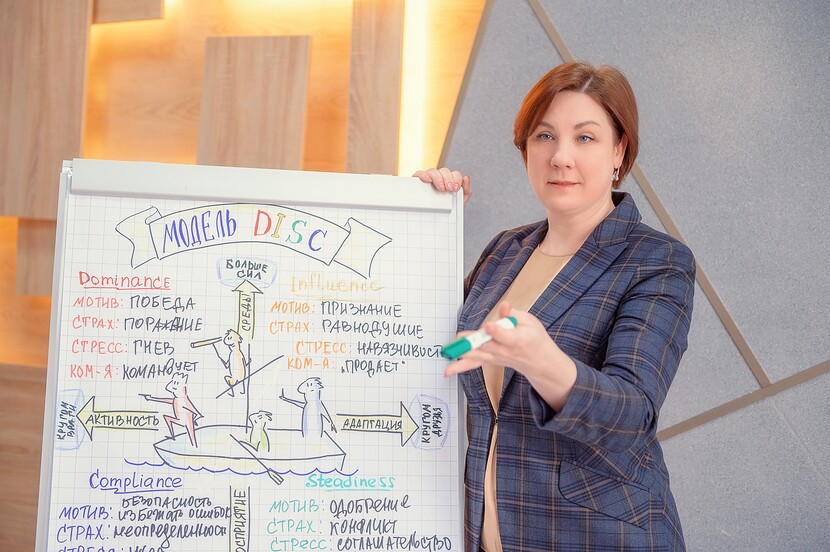 МОДЕЛЬ DISC
БОЛЬШЕ
СИЛ
СРЕДЫ
Dominance
МОТИВ: ПОБЕДА
СТРАХ: ПОРАЖЕНИЕ
СТРЕСС: ГНЕВ
КОМ-Я: КОМАНДУЕТ
Influence
МОТИВ: ПРИЗНАНИЕ
СТРАХ: РАВНОДУШИЕ
СТРЕСС: НАВЯЗЧИВОСТ
КОМ-Я: „ПРОДАЕТ"
КРУГОМ
ВРАГИ
АКТИВНОСТЬ
АДАПТАЦИЯ
КРУГОМ
ДРУЗЬЯ
Compliance
МОТИВ: БЕЗОПАСНОСТЬ
ИЗБЕЖАТЬ ОШИБОК
СТРАХ: НЕОПРЕДЕЛЕННОСТИ
ОСПРИЯТИЕ
Steadiness
МОТИВ: ОДОБРЕНИЕ
СТРАХ: КОНФЛИКТ
СТРЕСС: СОГЛАШАТЕЛЬСТВО